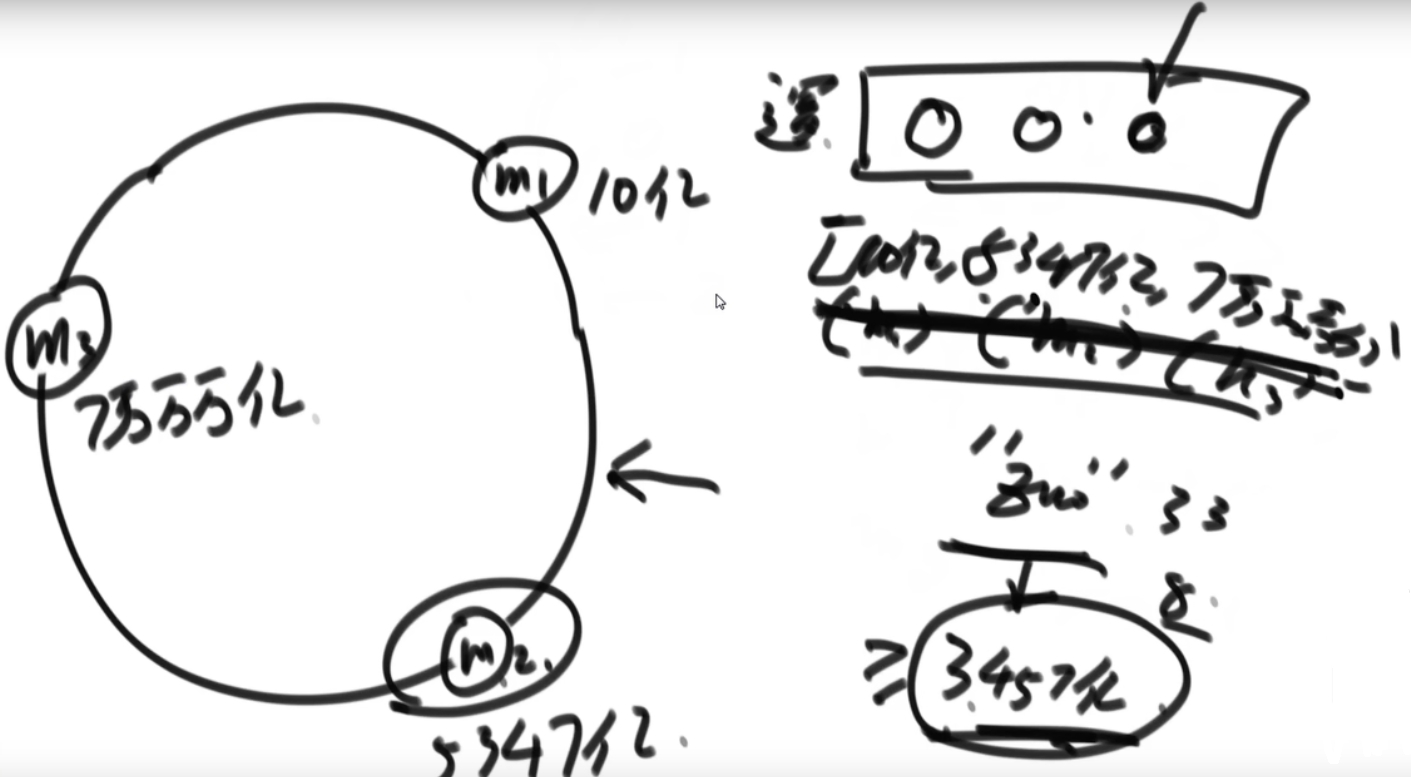 m1 10亿
m3
7万万万亿
m2
5347亿
逻
[10亿, 5347亿, 7万万万亿]
(m1) (m2) (m3)
"Zuo" 33
8
≥ 3457亿